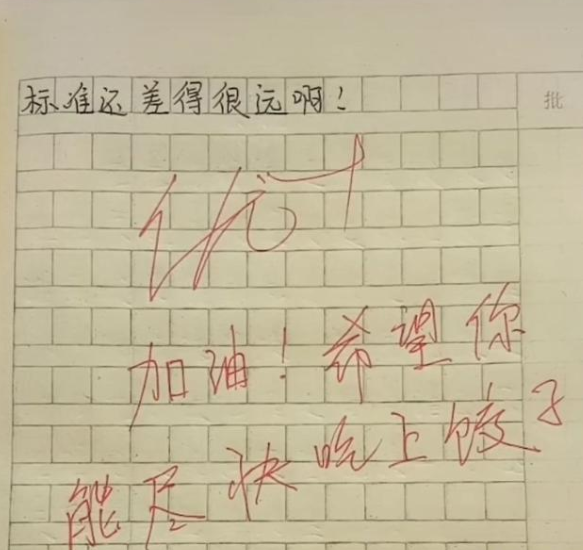 标准还差得很远啊！
批
优+
加油！希望你
能尽快吃上饺子